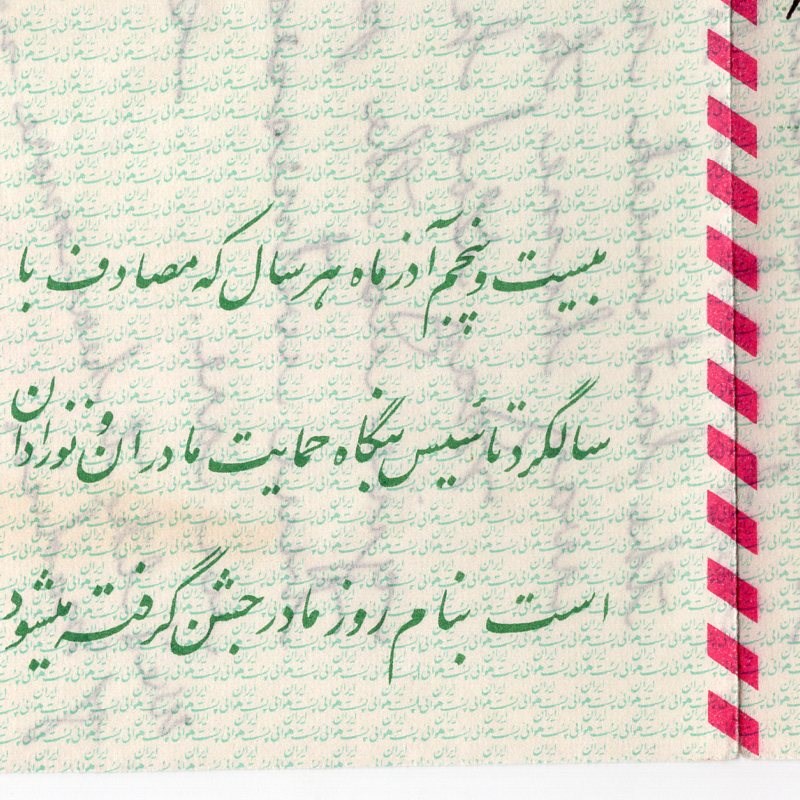 بیست و پنجم آذر ماه هر سال که مصادف با
سالگرد تأسیس بنگاه حمایت مادران و نوزادان
است بنام روز مادر جشن گرفته میشود